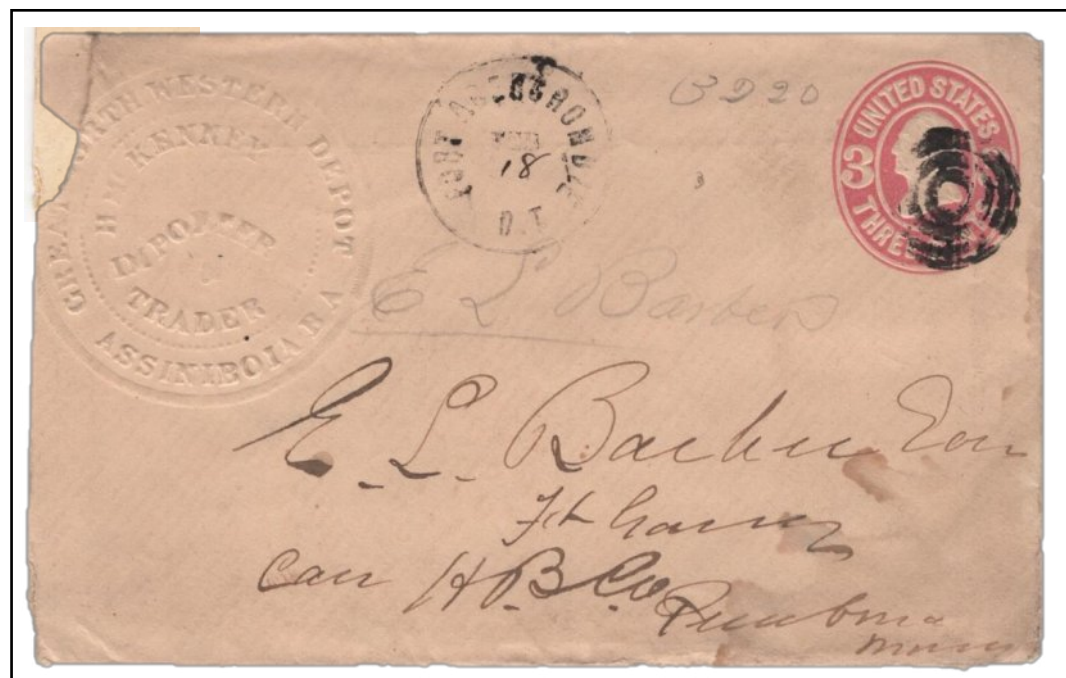 GREAT NORTH WESTERN DEPOT
H MC KENNEY
IMPORTER
&
TRADER
ASSINIBOIA B A
FORT ABERCROMBIE
18
D.T.
B220
UNITED STATES
3
THREE
E L Barber
E. L. Barber Esq
Ft Garry
Care H.B.Co.
Pembina
Minn